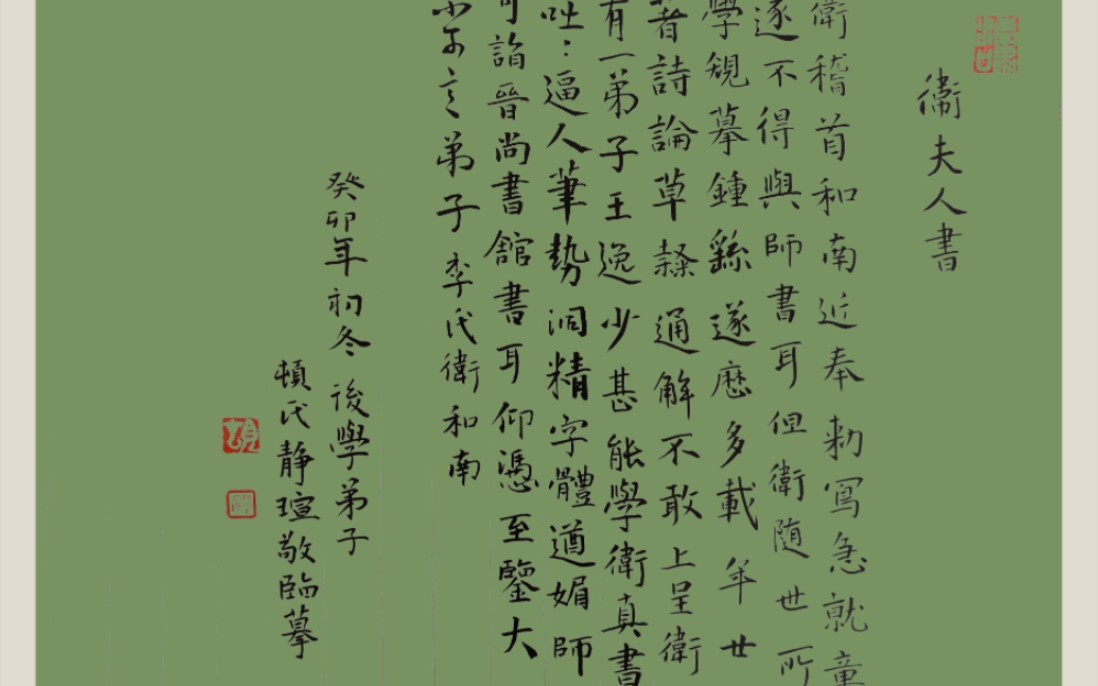 衛夫人書
衛稽首和南近奉勅寫急就章
遂不得與師書耳但衛隨世所
學規摹鍾繇遂歷多載年廿
著詩論草隸通解不敢上呈衛
有一弟子王逸少甚能學衛真書
咄:逼人筆勢洞精字體遒媚師
可詣晉尚書館書耳仰憑至鑒大
不可言弟子李氏衛和南
癸卯年初冬 後學弟子
頓氏靜瑄敬臨摹